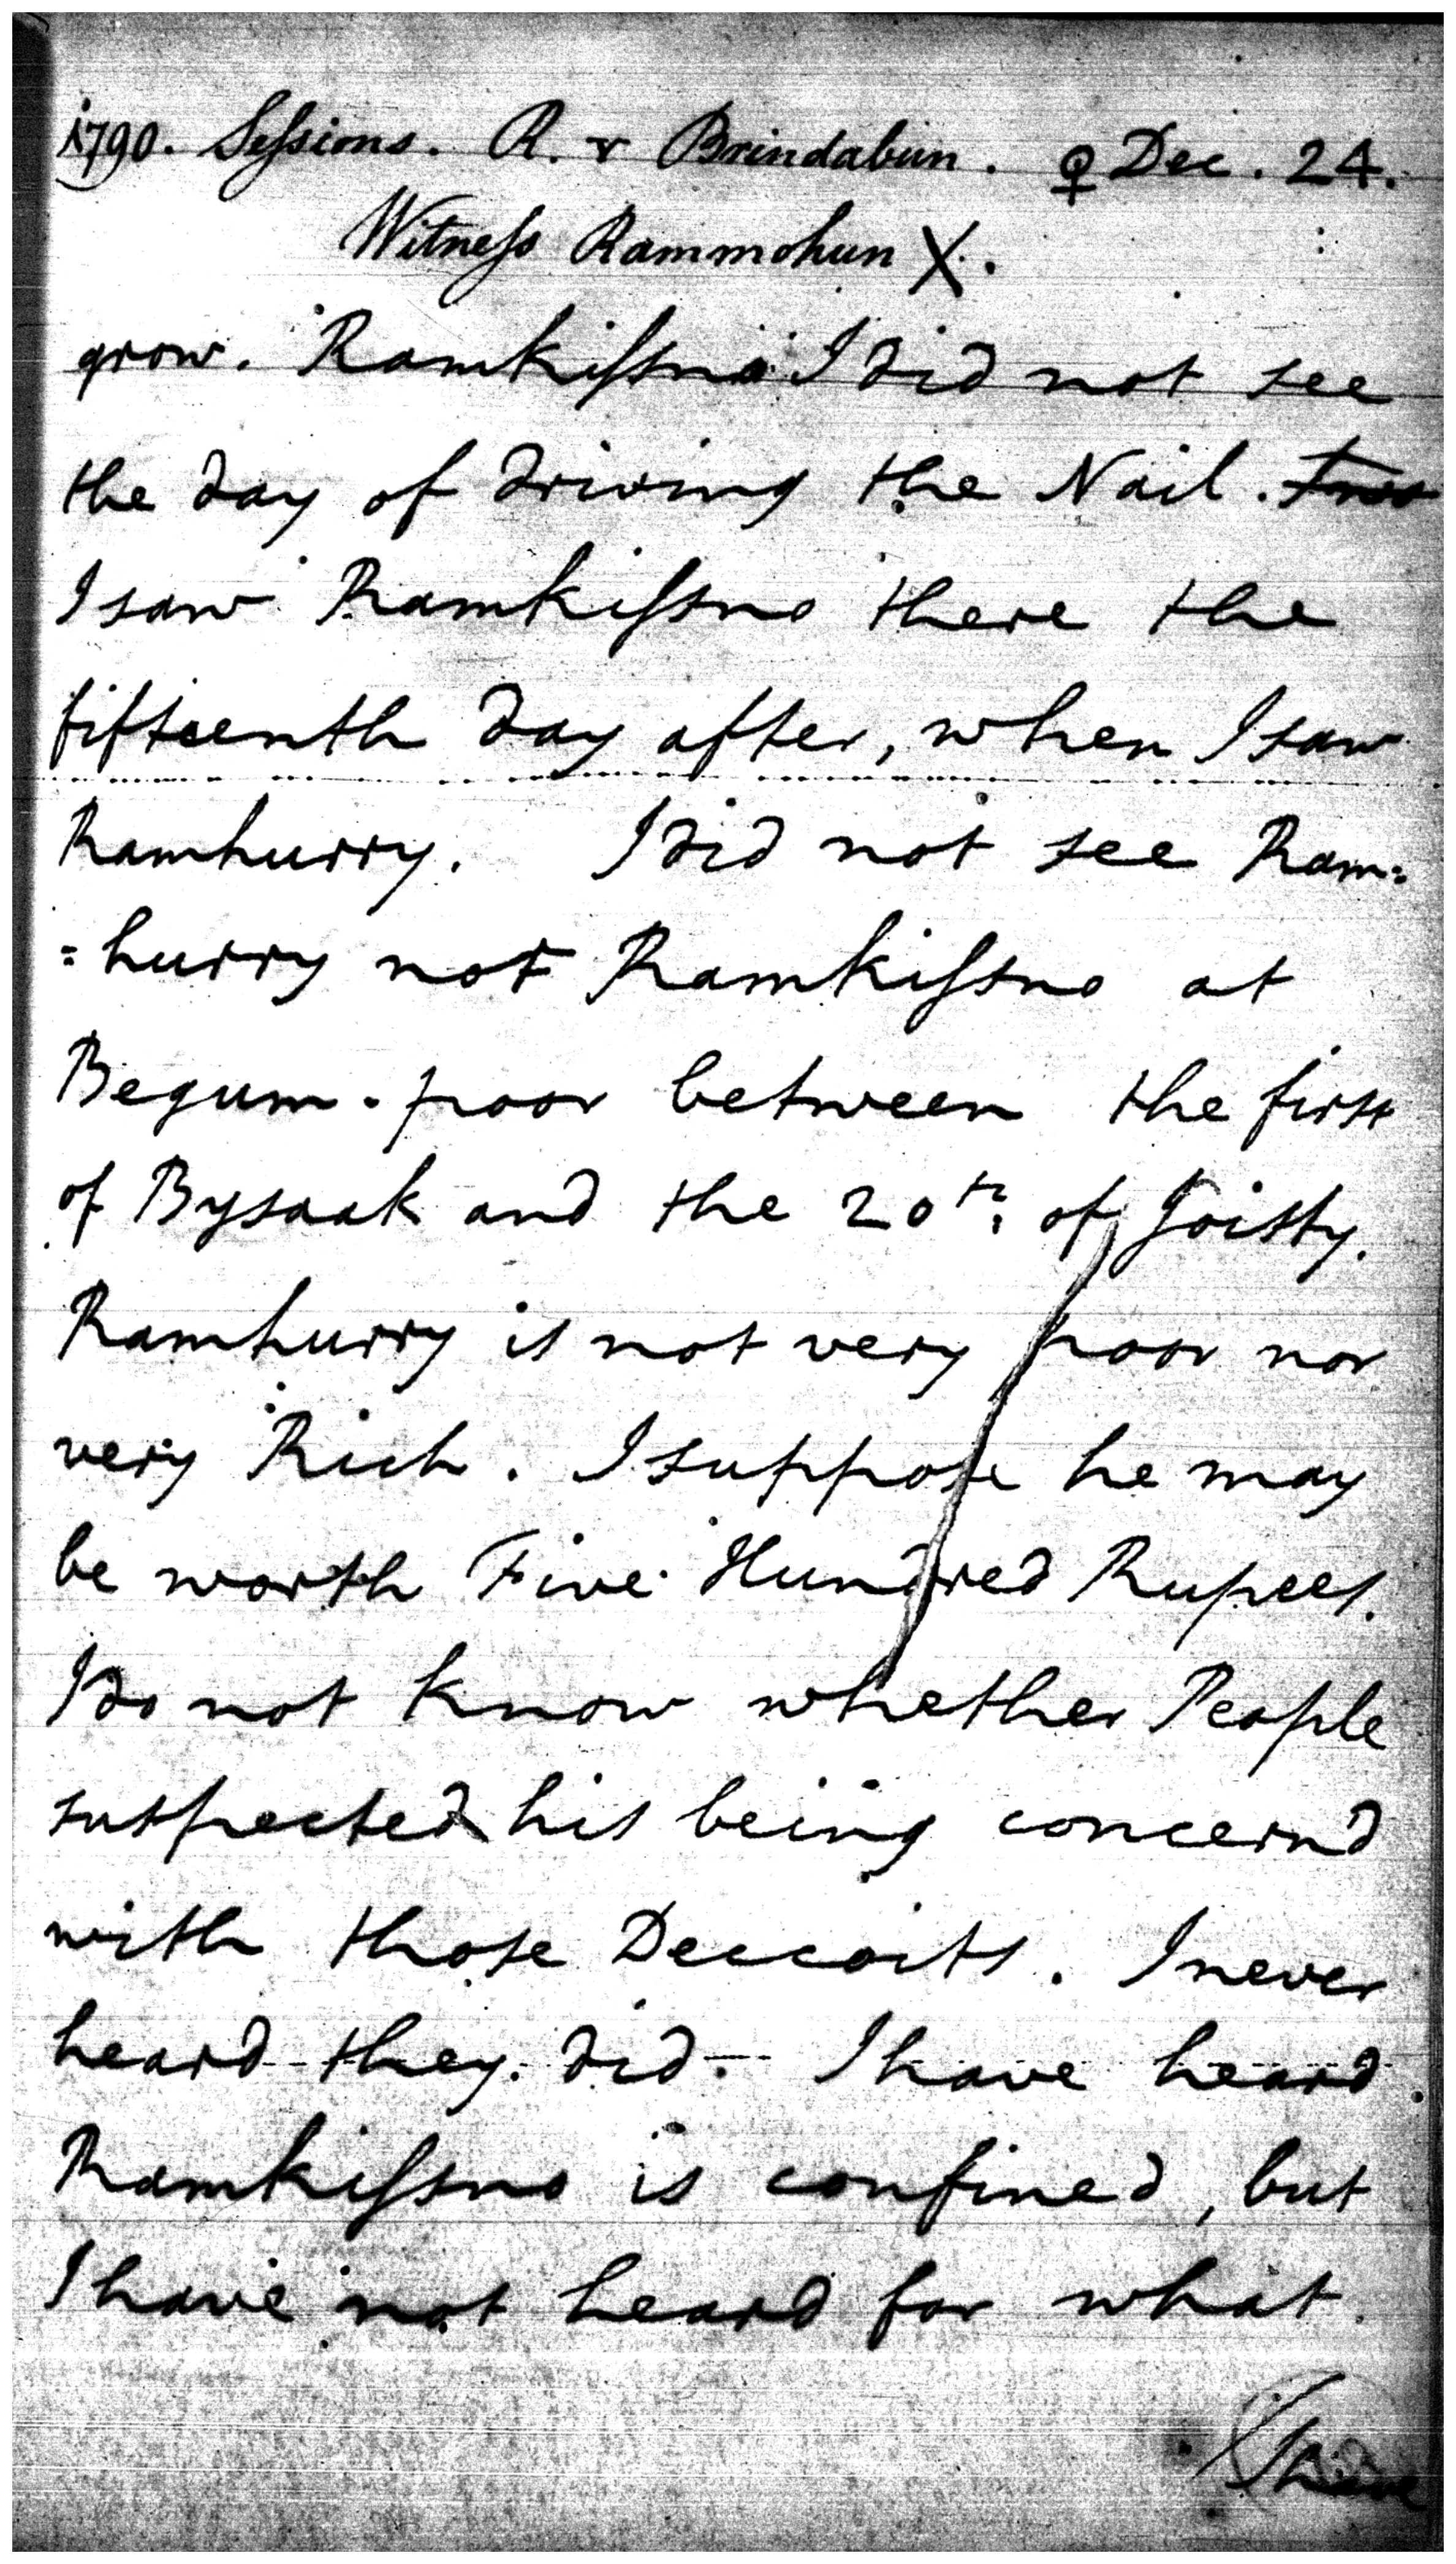 1790. Sessions. R. v Brindabun. ♀ Dec. 24.
Witness Rammohun X.
grow. Ramkissno I did not see
the day of driving the Nail.
I saw Ramkissno there the
fifteenth day after, when I saw
Ramhurry. I did not see Ram=
=hurry not Ramkissno at
Begum-poor between the first
of Bysaak and the 20th. of Joisty.
Ramhurry is not very poor nor
very Rich. I suppose he may
be worth Five Hundred Rupees.
I do not know whether People
suspected his being concern'd
with those Deccoits. I never
heard they did. I have heard
Ramkissno is confined, but
I have not heard for what.
I have